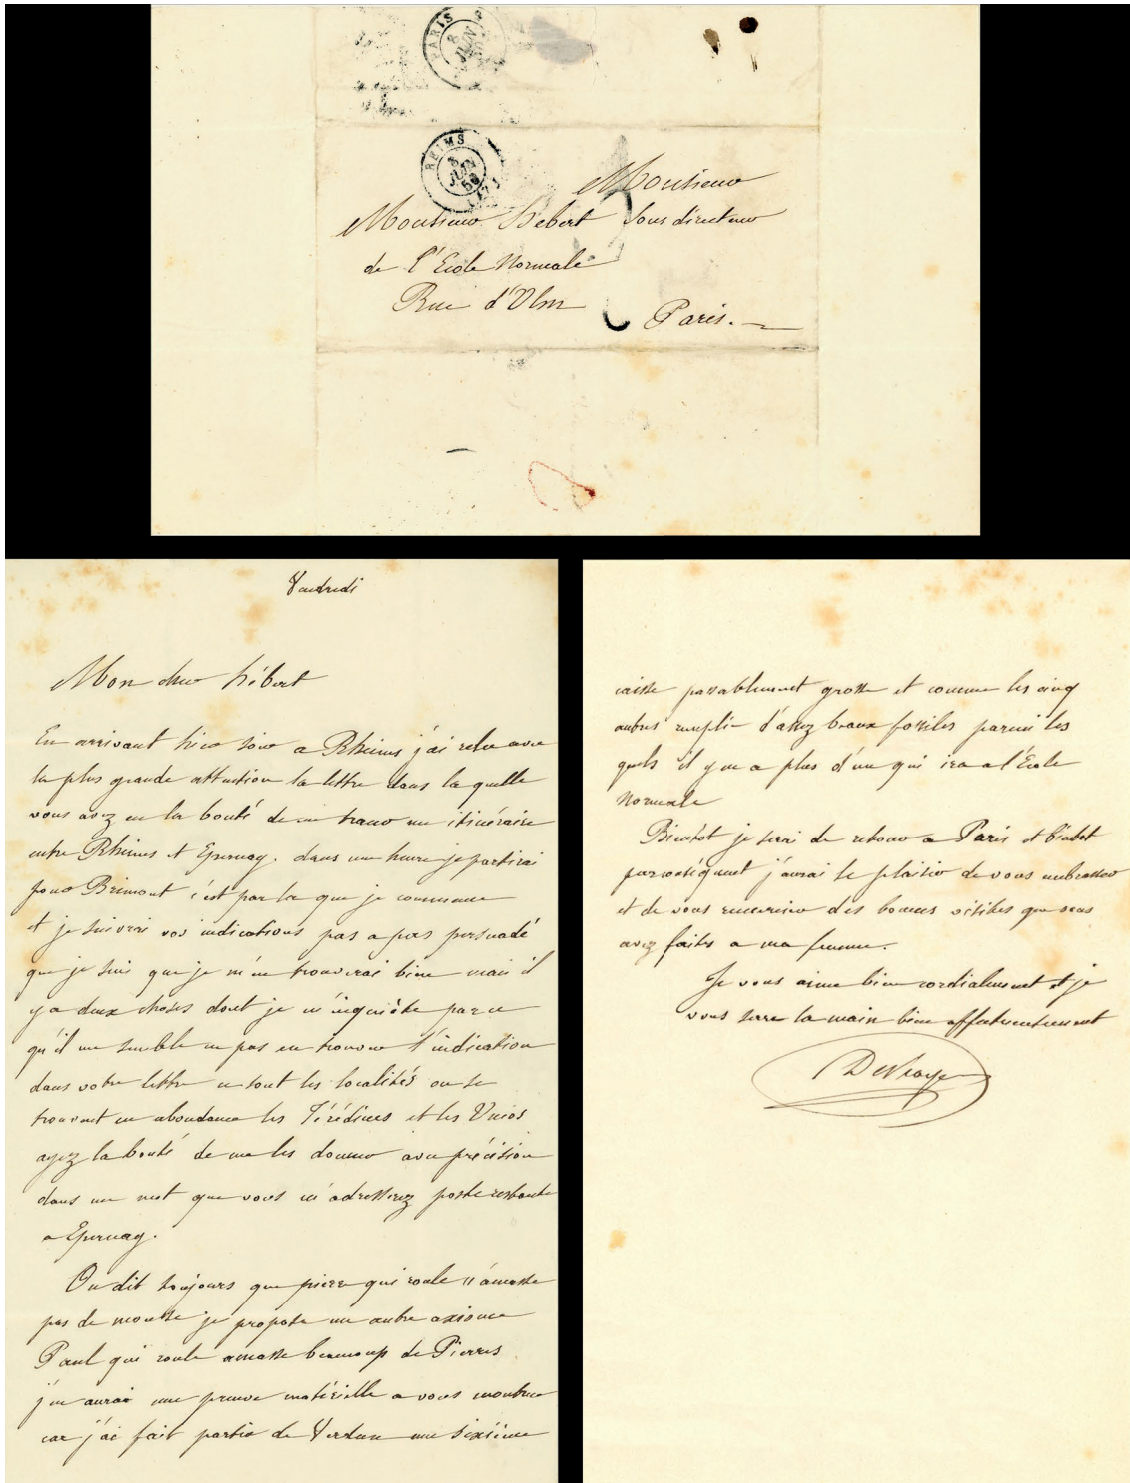 PARIS
JUIN
REIMS
JUIN
53
Monsieur
Monsieur Hebert Sous directeur
de l'Ecole Normale
Rue d'Ulm
Paris.
Vendredi
Mon cher hébert
En arrivant hier soir a Rheims j'ai relu avec
la plus grande attention la lettre dans la quelle
vous avez eu la bonté de me tracer un itinéraire
entre Rheims et Epernay. dans une heure je partirai
pour Brimont c'est par la que je commence
et je suivrai vos indications pas a pas persuadé
que je suis que je m'en trouverai bien mais il
y a deux choses dont je m'inquiète parce
qu'il me semble ne pas en trouver l'indication
dans votre lettre ce sont les localités ou se
trouvent en abondance les Térédines et les Unios
ayez la bonté de me les donner avec précision
dans un mot que vous m'adresserez poste restante
a Epernay.
On dit toujours que pierre qui roule n'amasse
pas de mousse je propose un autre axiome
Paul qui roule amasse beaucoup de Pierres
j'en aurai une preuve matérielle a vous montrer
car j'ai fait partir de Verdun une sixième
caisse passablement grosse et comme les cinq
autres remplie d'assez beaux fossiles parmi les
quels il y en a plus d'un qui ira a l'Ecole
Normale
Bientôt je serai de retour a Paris et bientot
par conséquent j'aurai le plaisir de vous embrasser
et de vous remercier des bonnes visites que vous
avez faites a ma femme.
Je vous aime bien cordialement et je
vous serre la main bien affectueusement